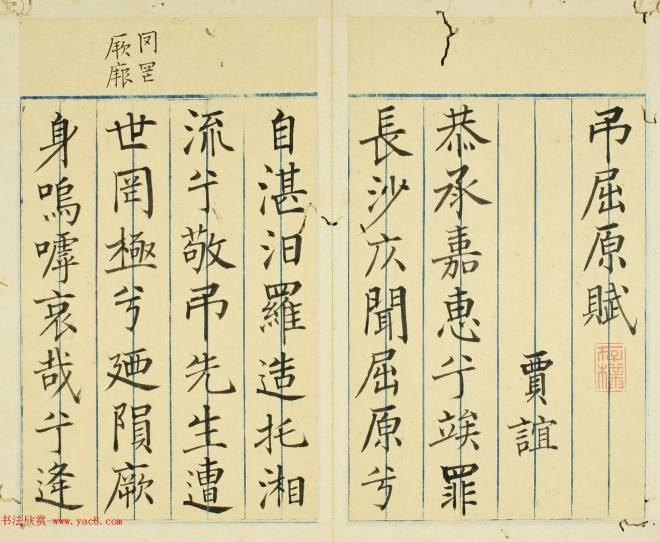 吊屈原賦
賈誼
恭承嘉惠兮竢罪
長沙仄聞屈原兮
自湛汨羅造托湘
流兮敬吊先生遭
世罔極兮迺隕厥
身嗚嘑哀哉兮逢
书法欣赏 www.yac8.com